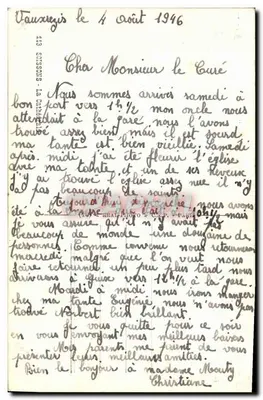 Vauxrezis le 4 août 1946
Cher Monsieur le Curé
Nous sommes arrivés samedi à
bon port vers 1h½ mon oncle nous
attendait à la gare nous l'avons
trouvé assez bien mais il est sourd
ma tante est bien vieillie. Samedi
après midi j'ai été fleurir l'église
avec ma tante, et un de ses neveux
j'y ai trouvé l'église assez nue il n'y
a pas beaucoup de saints
nous avons
été à la messe mais
je vous assure qu'il n'y avait pas
beaucoup de monde une douzaine de
personnes. Comme convenu nous retournons
mercredi malgré que l'on veut nous
faire retourner un peu plus tard nous
arriverons à vers 12h¼ à la gare.
Mardi à midi nous irons manger
chez ma tante Eugénie, nous n'avons pas
trouvé Robert bien brillant.
Je vous quitte pour ce soir
en vous envoyant mes meilleurs baisers
Mes parents me prient de vous
présenter leurs meilleures amitiés.
Bien le bonjour à madame
Christiane